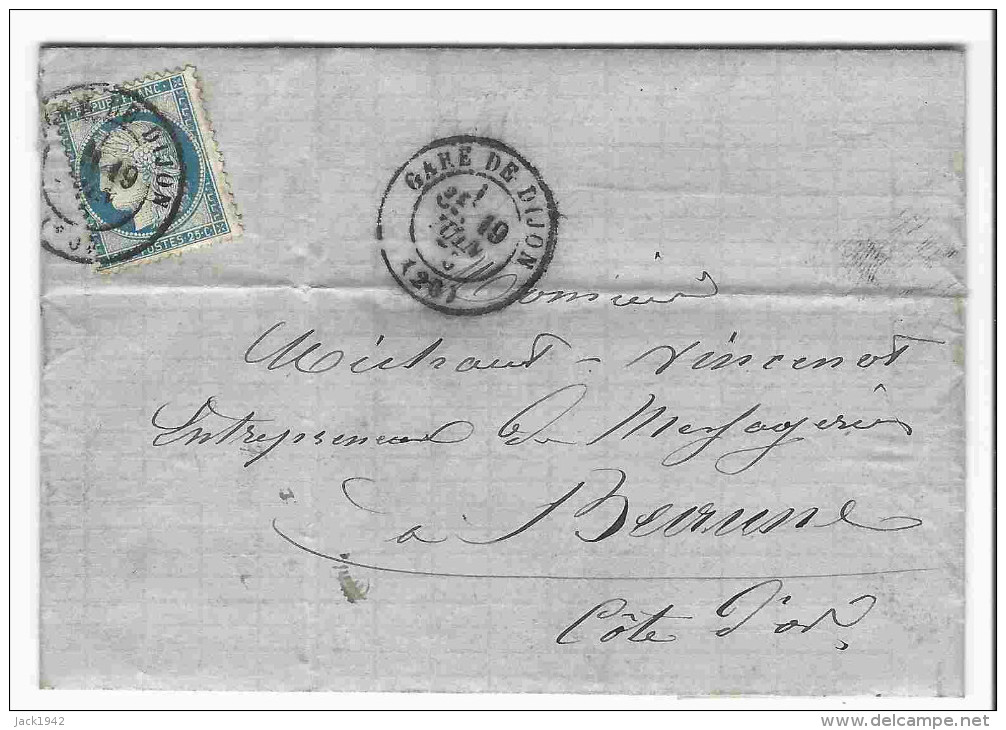 REPUB. FRANC.
DIJON
19
POSTES 25 C
GARE DE DIJON
19
JUIN
(20)
Monsieur
Michaut - Vincenot
Entrepreneur de Messageries
à Beaune
Côte d'or
jack1942
www.delcampe.net